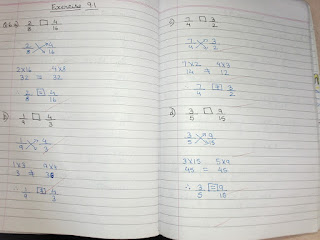 Exercise 9.1
Q.6. a) 2/8 □ 4/16
2/8 4/16
2×16 4×8
32 = 32
2/8 = 4/16
b) 1/9 □ 4/3
1/9 4/3
1×3 9×4
3 ≠ 36
1/9 ≠ 4/3
c) 7/4 □ 3/2
7/4 3/2
7×2 4×3
14 ≠ 12
7/4 ≠ 3/2
d) 3/5 □ 9/15
3/5 9/15
3×15 5×9
45 = 45
∴ 3/5 = 9/15